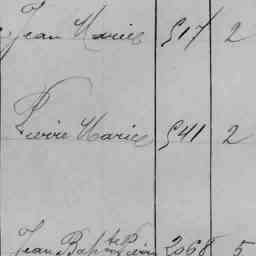 Jean Marie 517 2
Pierre Marie 541 2
Jean Bapte Pierre 2068 5